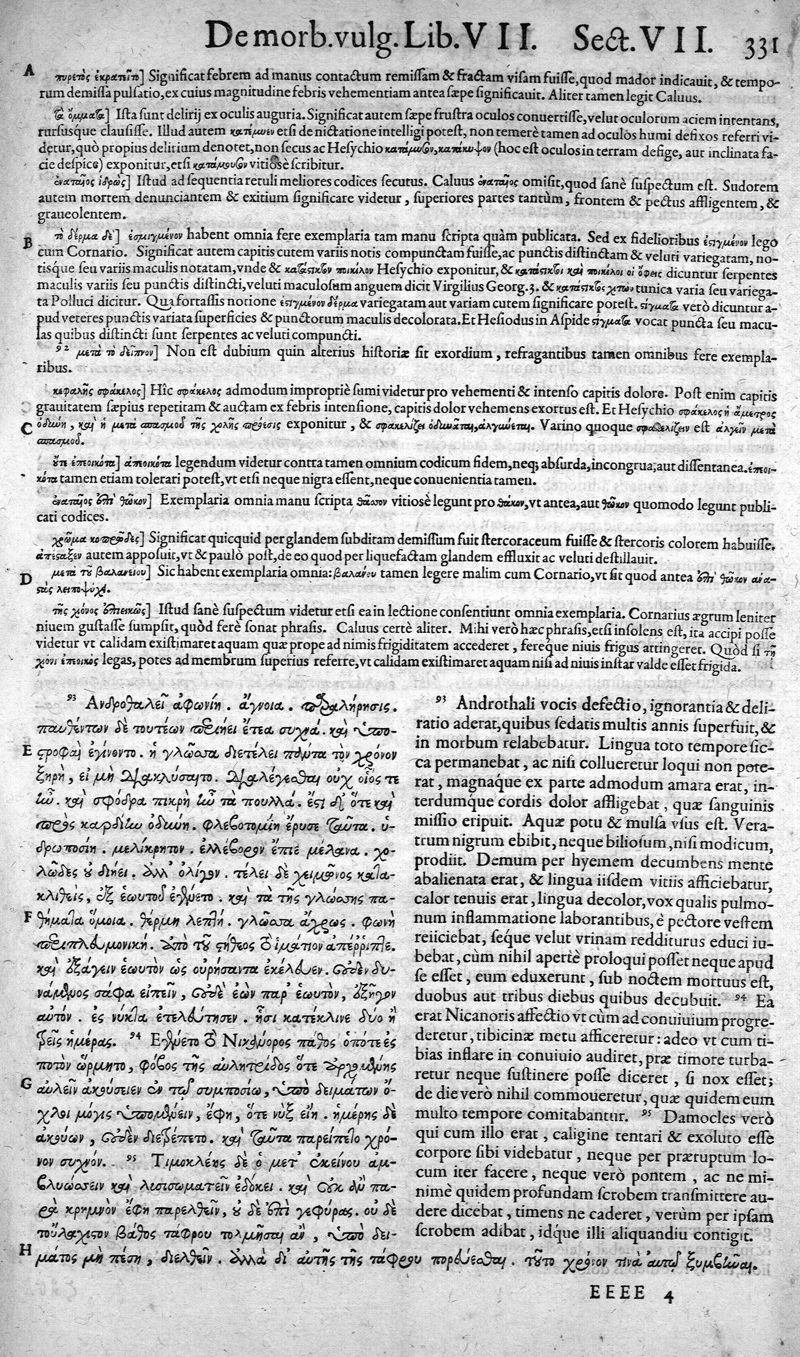 De morb. vulg. Lib. VII. Sect. VII. 331
A πυρετὸς] Significat febrem ad manus contactum remissam & fractam visam fuisse, quod mador indicauit, & tempo-
rum demissa pulsatio, ex cuius magnitudine febris vehementiam antea sæpe significauit. Aliter tamen legit Caluus.
Ista sunt delirij ex oculis auguria. Significat autem sæpe frustra oculos conuertisse, velut oculorum aciem intentans,
rursusque clausisse. Illud autem etsi de nictatione intelligi potest, non temerè tamen ad oculos humi defixos referri vi-
detur, quò propius delirium denotet, non secus ac Hesychio (hoc est oculos in terram defige, aut inclinata fa-
cie despice) exponitur, etsi vitiosè scribitur.
Istud ad sequentia retuli meliores codices secutus. Caluus omisit, quod sanè suspectum est. Sudorem
autem mortem denunciantem & exitium significare videtur, superiores partes tantùm, frontem & pectus affligentem, &
graueolentem.
B τὸ δέρμα δὲ] habent omnia fere exemplaria tam manu scripta quàm publicata. Sed ex fidelioribus ἐστιγμένον lego
cum Cornario. Significat autem capitis cutem variis notis compunctam fuisse, ac punctis distinctam & veluti variegatam, no-
tisque seu variis maculis notatam, vnde & Hesychio exponitur, & dicuntur serpentes
maculis variis seu punctis distincti, veluti maculosum anguem dicit Virgilius Georg. 3. & tunica varia seu variega-
ta Polluci dicitur. Qua fortassis notione ἐστιγμένον δέρμα variegatam aut variam cutem significare potest. στίγματα verò dicuntur a-
pud veteres punctis variata superficies & punctorum maculis decolorata. Et Hesiodus in Aspide στίγματα vocat puncta seu macu-
las quibus distincti sunt serpentes ac veluti compuncti.
92 μετὰ τὸ δεῖπνον] Non est dubium quin alterius historiæ sit exordium, refragantibus tamen omnibus fere exempla-
ribus.
κεφαλῆς σφάκελος] Hîc σφάκελος admodum impropriè sumi videtur pro vehementi & intenso capitis dolore. Post enim capitis
grauitatem sæpius repetitam & auctam ex febris intensione, capitis dolor vehemens exortus est. Et Hesychio σφάκελος ἡ ἄμετρος
C ὀδύνη, καὶ ἡ μετὰ σπασμοῦ τῆς χολῆς exponitur, & Varino quoque est ἀλγεῖν μετὰ
σπασμοῦ.
legendum videtur contra tamen omnium codicum fidem, neq; absurda, incongrua, aut dissentanea.
tamen etiam tolerari potest, vt etsi neque nigra essent, neque conuenientia tamen.
Exemplaria omnia manu scripta vitiosè legunt pro θᾶκον, vt antea, aut θῶκον quomodo legunt publi-
cati codices.
Significat quicquid per glandem subditam demissum fuit stercoraceum fuisse & stercoris colorem habuisse.
autem apposuit, vt & paulò post, de eo quod per liquefactam glandem effluxit ac veluti destillauit.
D μετὰ τοῦ βαλανείου] Sic habent exemplaria omnia: βαλάνου tamen legere malim cum Cornario, vt sit quod antea

τῆς χιόνος ἐπιεικῶς] Istud sanè suspectum videtur etsi ea in lectione consentiunt omnia exemplaria. Cornarius ægrum leniter
niuem gustasse sumpsit, quòd ferè sonat phrasis. Caluus certè aliter. Mihi verò hæc phrasis, etsi insolens est, ita accipi posse
videtur vt calidam existimaret aquam quæ prope ad nimis frigiditatem accederet, fereque niuis frigus attingeret. Quòd si τῇ
χιόνι legas, potes ad membrum superius referre, vt calidam existimaret aquam nisi ad niuis instar valde esset frigida.
93 Ἀνδροθαλεῖ ἀφωνίη. ἄγνοια. παραλήρησις.
παυθέντων δὲ τουτέων περιῄει ἔτεα συχνά. καὶ ὑπο-
E στροφαὶ ἐγίνοντο. ἡ γλῶσσα διετέλει πάντα τὸν χρόνον
ξηρὴ, εἰ μὴ διακλύσαιτο. διαλέγεσθαι οὐχ οἷός τε
ἦν. καὶ σφόδρα πικρὴ ἦν τὰ πουλλά. ἔστι δ' ὅτε καὶ
πρὸς καρδίην ὀδύνη. φλεβοτομίη ἔρυσε ταῦτα. ὑ-
δροποσίη. μελίκρητον. ἐλλέβορον ἔπιε μέλανα. χο-
λῶδες οὐ διῄει. ἀλλ' ὀλίγον. τέλει δὲ χειμῶνος κατα-
κλιθεὶς, ἐξ ἑωυτοῦ ἐγένετο. καὶ τὰ τῆς γλώσσης πα-
F θήματα ὅμοια. θέρμη λεπτή. γλῶσσα ἄχρως. φωνὴ
περιπλευμονική. ἀπὸ τοῦ στήθεος τὸ ἱμάτιον ἀπέρριπτε.
καὶ ἐξάγειν ἑωυτὸν ὡς οὐρήσαντα ἐκέλευεν. οὐδὲν δυ-
νάμενος σάφα εἰπεῖν, οὐδὲ ἐὼν παρ' ἑωυτὸν, ἐξῆγον
αὐτόν. ἐς νύκτα ἐτελεύτησεν. ᾗσι κατέκλινε δύο ἢ
τρεῖς ἡμέρας. 94 Ἐγένετο τὸ Νικάνορος πάθος ὁπότε ἐς
ποτὸν ὥρμητο, φόβος τῆς αὐλητρίδος ὅτε ἀρχομένης
G αὐλεῖν ἀκούσειεν ἐν τῷ συμποσίῳ, ὑπὸ δειμάτων ὄ-
χλοι μόγις ὑπομένειν, ἔφη, ὅτε νὺξ εἴη. ἡμέρης δὲ
ἀκούων, οὐδὲν διετρέπετο. καὶ ταῦτα παρείπετο χρό-
νον συχνόν. 95 Τιμοκλῆς δὲ ὁ μετ' ἐκείνου ἀμ-
βλυώσσειν καὶ λυσισωματεῖν ἐδόκει. καὶ οὐκ ἂν πα-
ρὰ κρημνὸν ἔφη παρελθεῖν, οὐ δὲ ἐπὶ γεφύρας. οὐ δὲ
τοὐλάχιστον βάθος τάφρου τολμῆσαι ἂν, ὑπὸ δεί-
H ματος μὴ πέσῃ, διελθεῖν. ἀλλὰ δι' αὐτῆς τῆς τάφρου πορεύεσθαι. τοῦτο χρόνον τινὰ αὐτῷ ξυμβῆναι.
93 Androthali vocis defectio, ignorantia & deli-
ratio aderat, quibus sedatis multis annis superfuit, &
in morbum relabebatur. Lingua toto tempore sic-
ca permanebat, ac nisi collueretur loqui non pote-
rat, magnaque ex parte admodum amara erat, in-
terdumque cordis dolor affligebat, quæ sanguinis
missio eripuit. Aquæ potu & mulsa vsus est. Vera-
trum nigrum ebibit, neque biliosum, nisi modicum,
prodiit. Demum per hyemem decumbens mente
abalienata erat, & lingua iisdem vitiis afficiebatur,
calor tenuis erat, lingua decolor, vox qualis pulmo-
num inflammatione laborantibus, è pectore vestem
reiiciebat, seque velut vrinam redditurus educi iu-
bebat, cùm nihil apertè proloqui posset neque apud
se esset, eum eduxerunt, sub noctem mortuus est,
duobus aut tribus diebus quibus decubuit. 94 Ea
erat Nicanoris affectio vt cùm ad conuiuium progre-
deretur, tibicinæ metu afficeretur: adeo vt cum ti-
bias inflare in conuiuio audiret, præ timore turba-
retur neque sustinere posse diceret, si nox esset;
de die verò nihil commoueretur, quæ quidem eum
multo tempore comitabantur. 95 Damocles verò
qui cum illo erat, caligine tentari & exoluto esse
corpore sibi videbatur, neque per præruptum lo-
cum iter facere, neque verò pontem, ac ne mi-
nimè quidem profundam scrobem transmittere au-
dere dicebat, timens ne caderet, verùm per ipsam
scrobem adibat, idque illi aliquandiu contigit.
EEEE 4